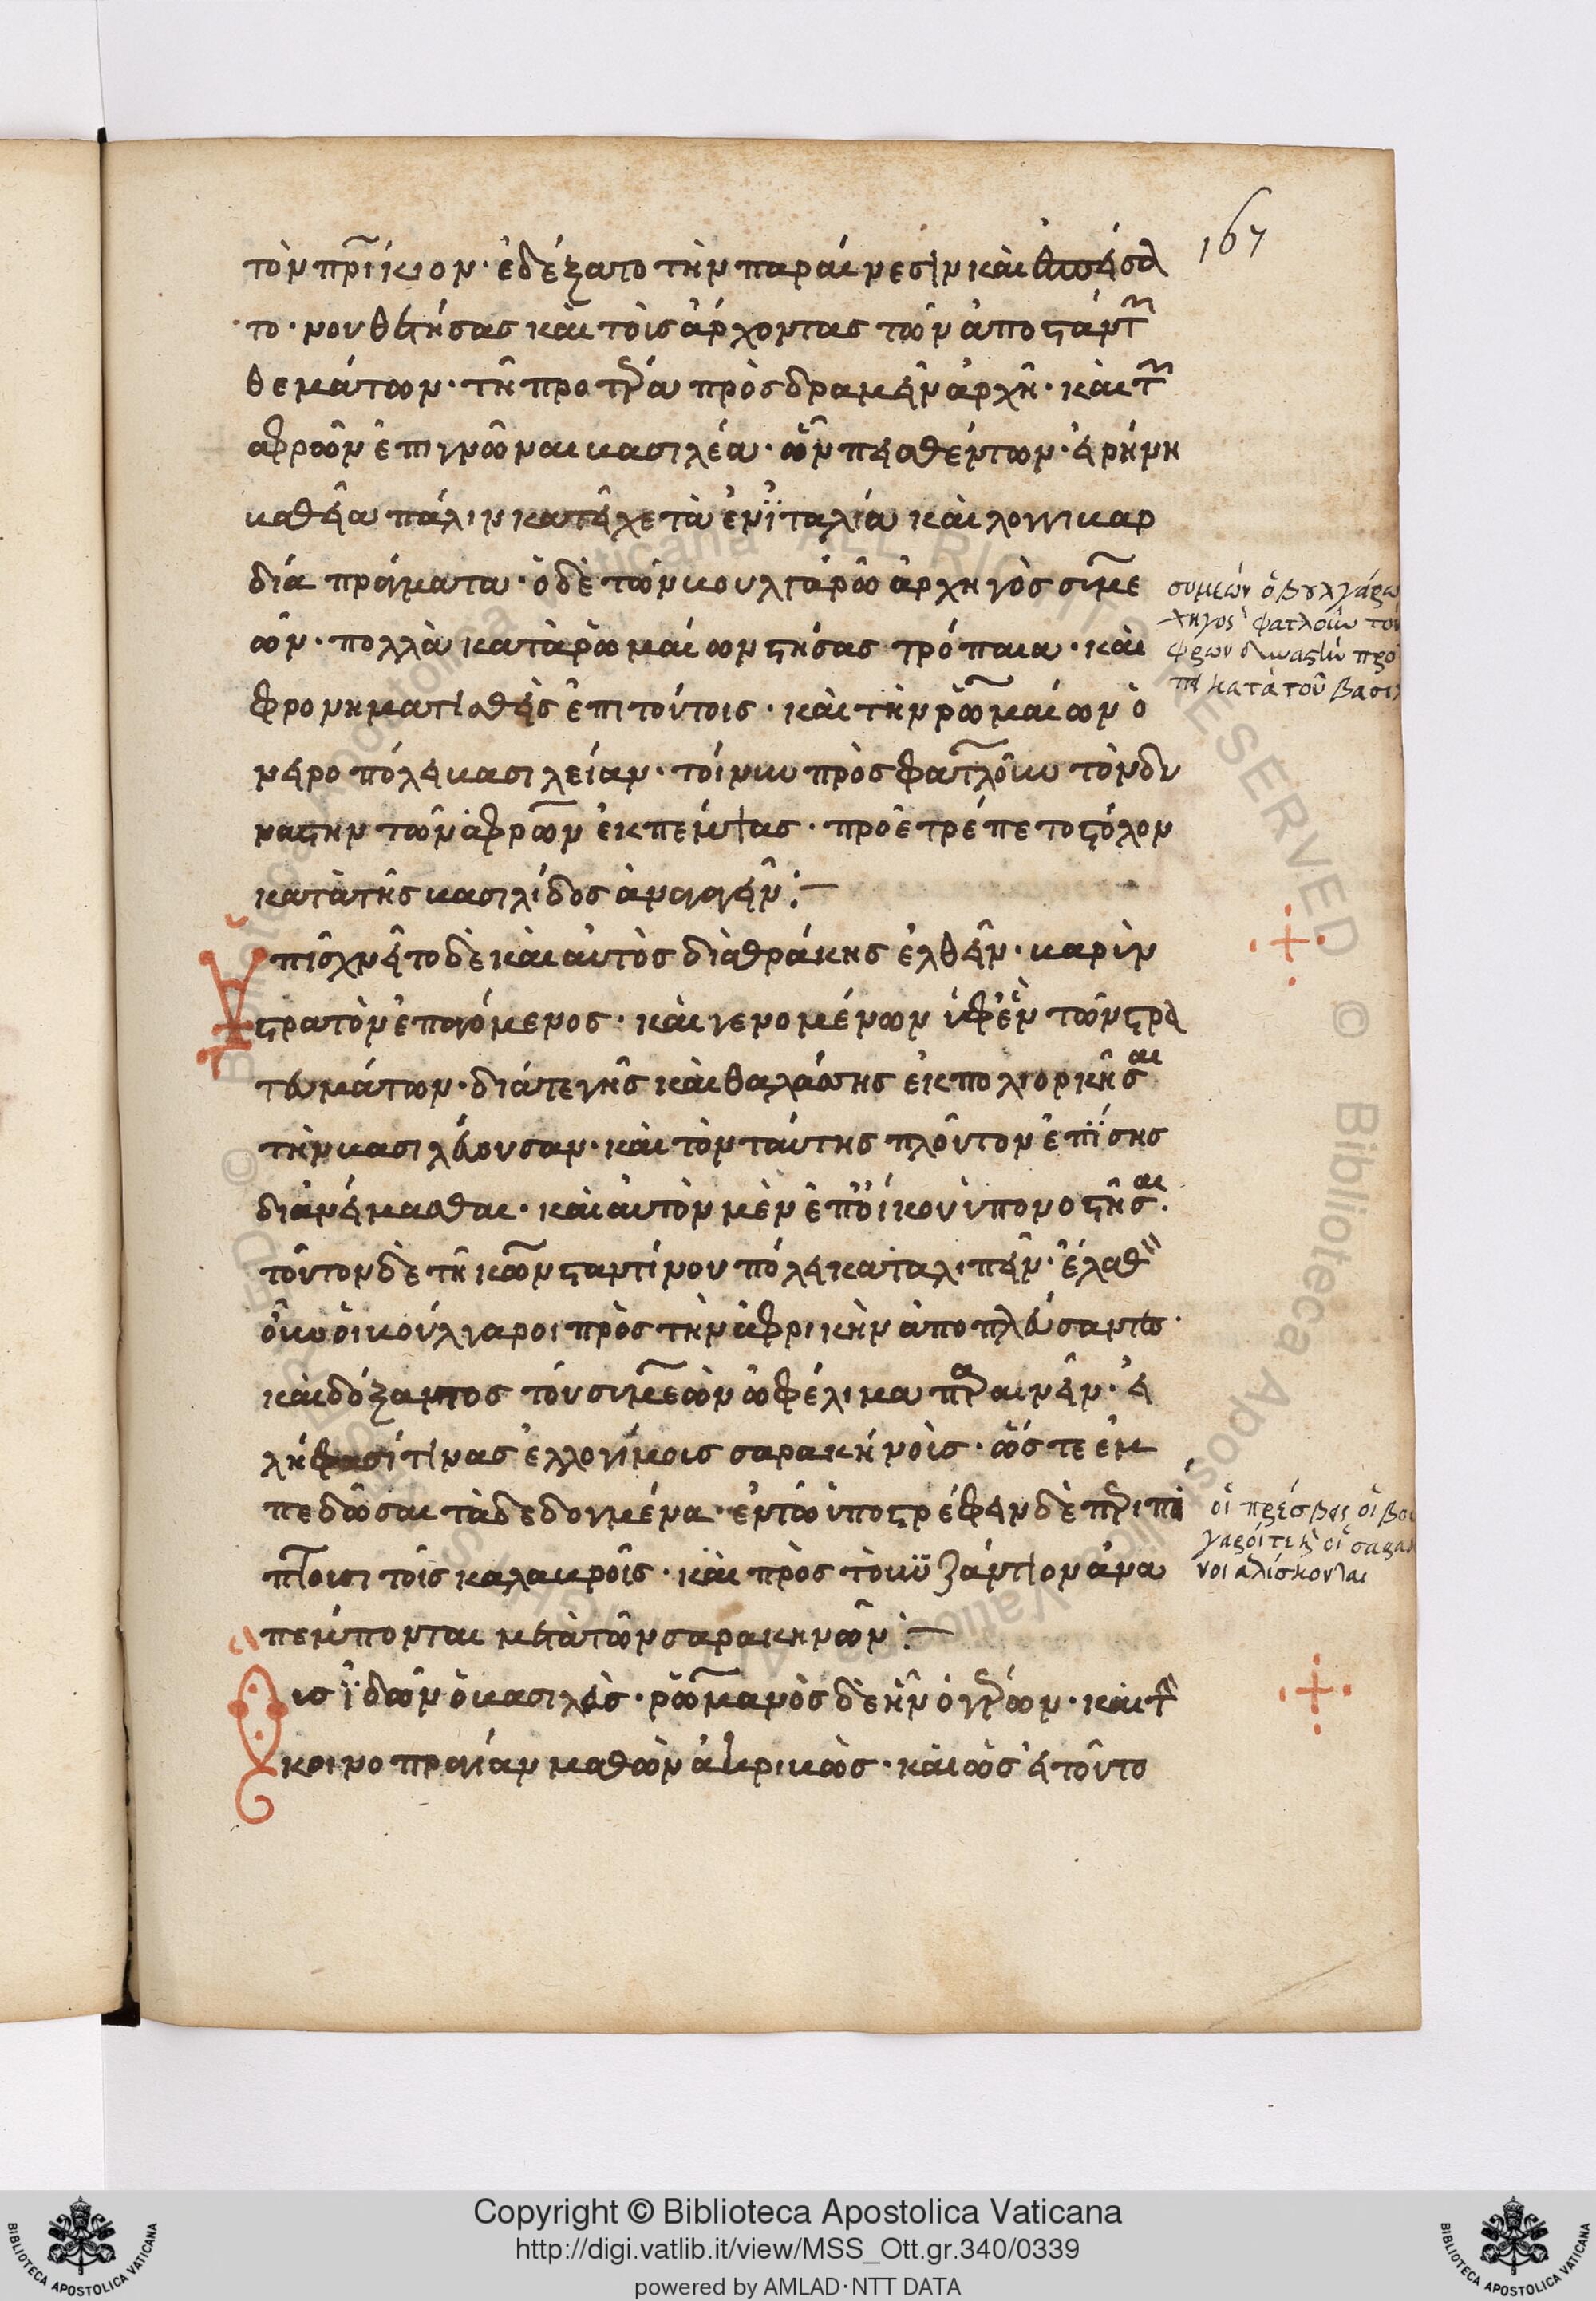 167
τὸν πρικιον· ἐδέξατο τὴν παραίνεσιν καὶ
το· νουθετήσας καὶ τοὺς ἄρχοντας τῶν ἀποστάντ
θεμάτων· τῆ προτρα προσδραμεῖν ἀρχῆ· καὶ τ
ἀφρῶν ἐπιγνῶναι βασιλέα· ὧν πεισθέντων· εἰρήνη
βαθεῖα πάλιν κατεῖχε τὰ ἐν ϊταλία καὶ λογγιβαρ
δία πράγματα· ὁ δὲ τῶν βουλγάρω ἀρχηγὸς συμε
ὼν· πολλὰ κατὰ ῥωμαίων στήσας τρόπαια· καὶ
φρονηματισθεὶς ἐπι τούτοις· καὶ τὴν ῥωμαίων ὀ
νειροπόλει βασιλείαν· τοίνυν πρὸς φατλοῦν τὸν δυ
νάστην τῶν ἄφρων ἐκπέμψας· προετρέπετο στόλον
κατὰ τῆς βασιλίδος ἀναγαγεῖν:—
Υπισχνεῖτο δὲ καὶ αὐτὸς διὰ θράκης ἐλθεῖν· βαρὺν
στρατὸν ἐπαγόμενος· καὶ γενομένων ὑφὲν τῶν στρα
τευμάτων· διά τε γῆς καὶ θαλάσσης ἐκπολιορκῆσαι
τὴν βασιλεύουσαν· καὶ τὸν ταύτης πλοῦτον ἐπϊσης
διανείμασθαι· καὶ αὐτὸν μὲν ἐπ' οἴκου ὑπονοστῆσαι.
τοῦτον δὲ τῆ κωνσταντίνου πόλει καταλιπεῖν· ἔλαθ
οὖν οἱ βούλγαροι πρὸς τὴν ἀφρικὴν ἀποπλεύσαντες·
καὶ δόξαντος τοῦ συμεὼν ὠφέλιμα παραινεῖν· εἰ
λήφασί τινας ἐλλογίμοις σαρακήνοὶς· ὥστε ἐμ
πεδῶσαι τὰ δεδογμένα· ἐν τῶ ὑποστρέφειν δὲ περιπί
πτουσι τοῖς καλαυροῖς· καὶ πρὸς τὸ βυζάντιον ἀνα
πέμπονται μετὰ τῶν σαρακηνῶν:—
ους ϊδὼν ὁ βασιλεὺς· ῥωμανὸς δὲ ἦν ὁ γέρων· καὶ τ
κοινοπραγίαν μαθὼν ἀκριβῶς· καὶ ὡς εἰ τοῦτο
συμεών ὁ βουλγάρω
χηγος φατλοῦν τὸν
ἄφρων δυναστὴν προ
πει κατὰ τοῦ βασιλ
οἱ πρέσβεις οἱ βου
γαροί τε καὶ οἱ σαρακ
νοι ἁλίσκονται
Copyright © Biblioteca Apostolica Vaticana
http://digi.vatlib.it/view/MSS_Ott.gr.340/0339
powered by AMLAD·NTT DATA
BIBLIOTECA APOSTOLICA VATICANA
BIBLIOTECA APOSTOLICA VATICANA